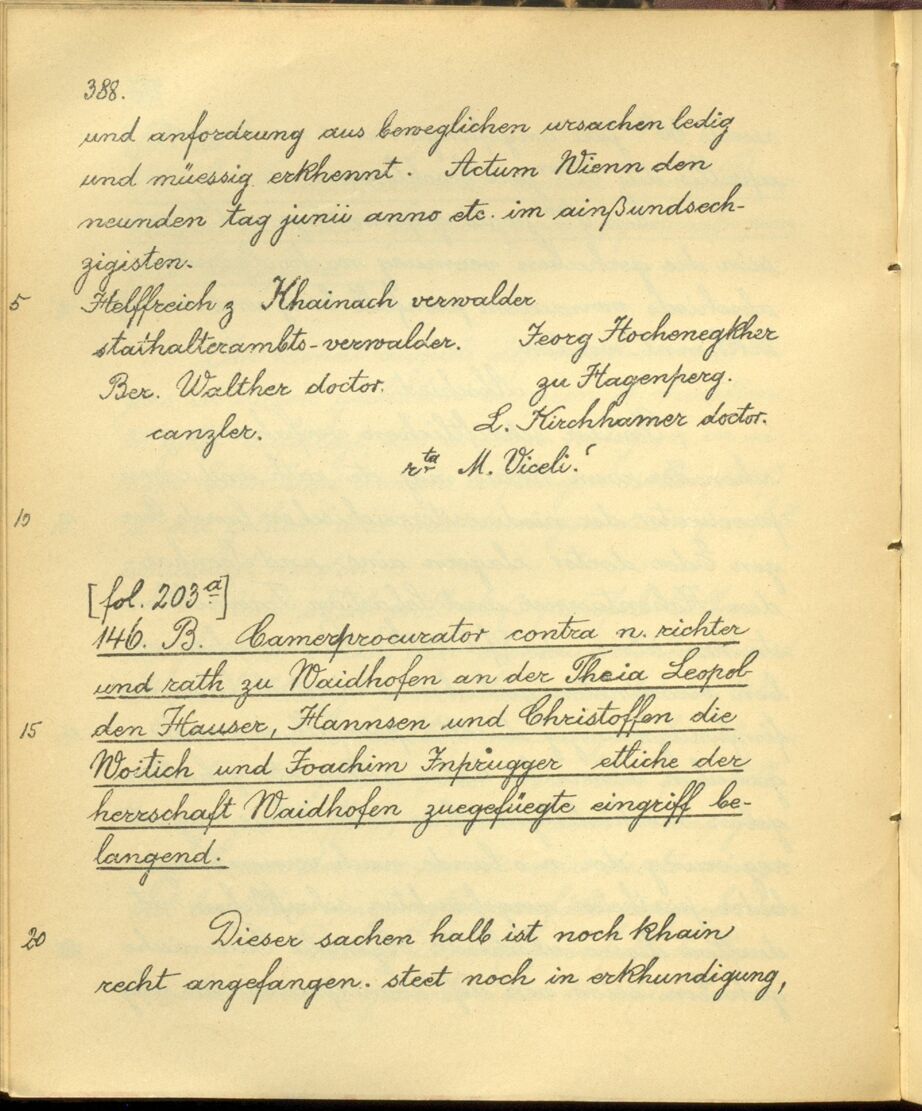 388.
und anfordrung aus beweglichen ursachen ledig
und müessig erkhennt. Actum Wienn den
neunden tag junii anno etc. im ainßundsech-
zigisten.
5 Helffreich z Khainach verwalder
stathalterambts-verwalder. Georg Hochenegkher
Ber. Walther doctor. zu Hagenperg.
canzler. L. Kirchhamer doctor.
rta M. Viceli.
10
[fol. 203a]
146. B. Camerprocurator contra n. richter
und rath zu Waidhofen an der Theia Leopol-
15 den Hauser, Hannsen und Christoffen die
Woitich und Joachim Inprugger etliche der
herrschaft Waidhofen zuegefüegte eingriff be-
langend.
20 Dieser sachen halb ist noch khain
recht angefangen. steet noch in erkhundigung,